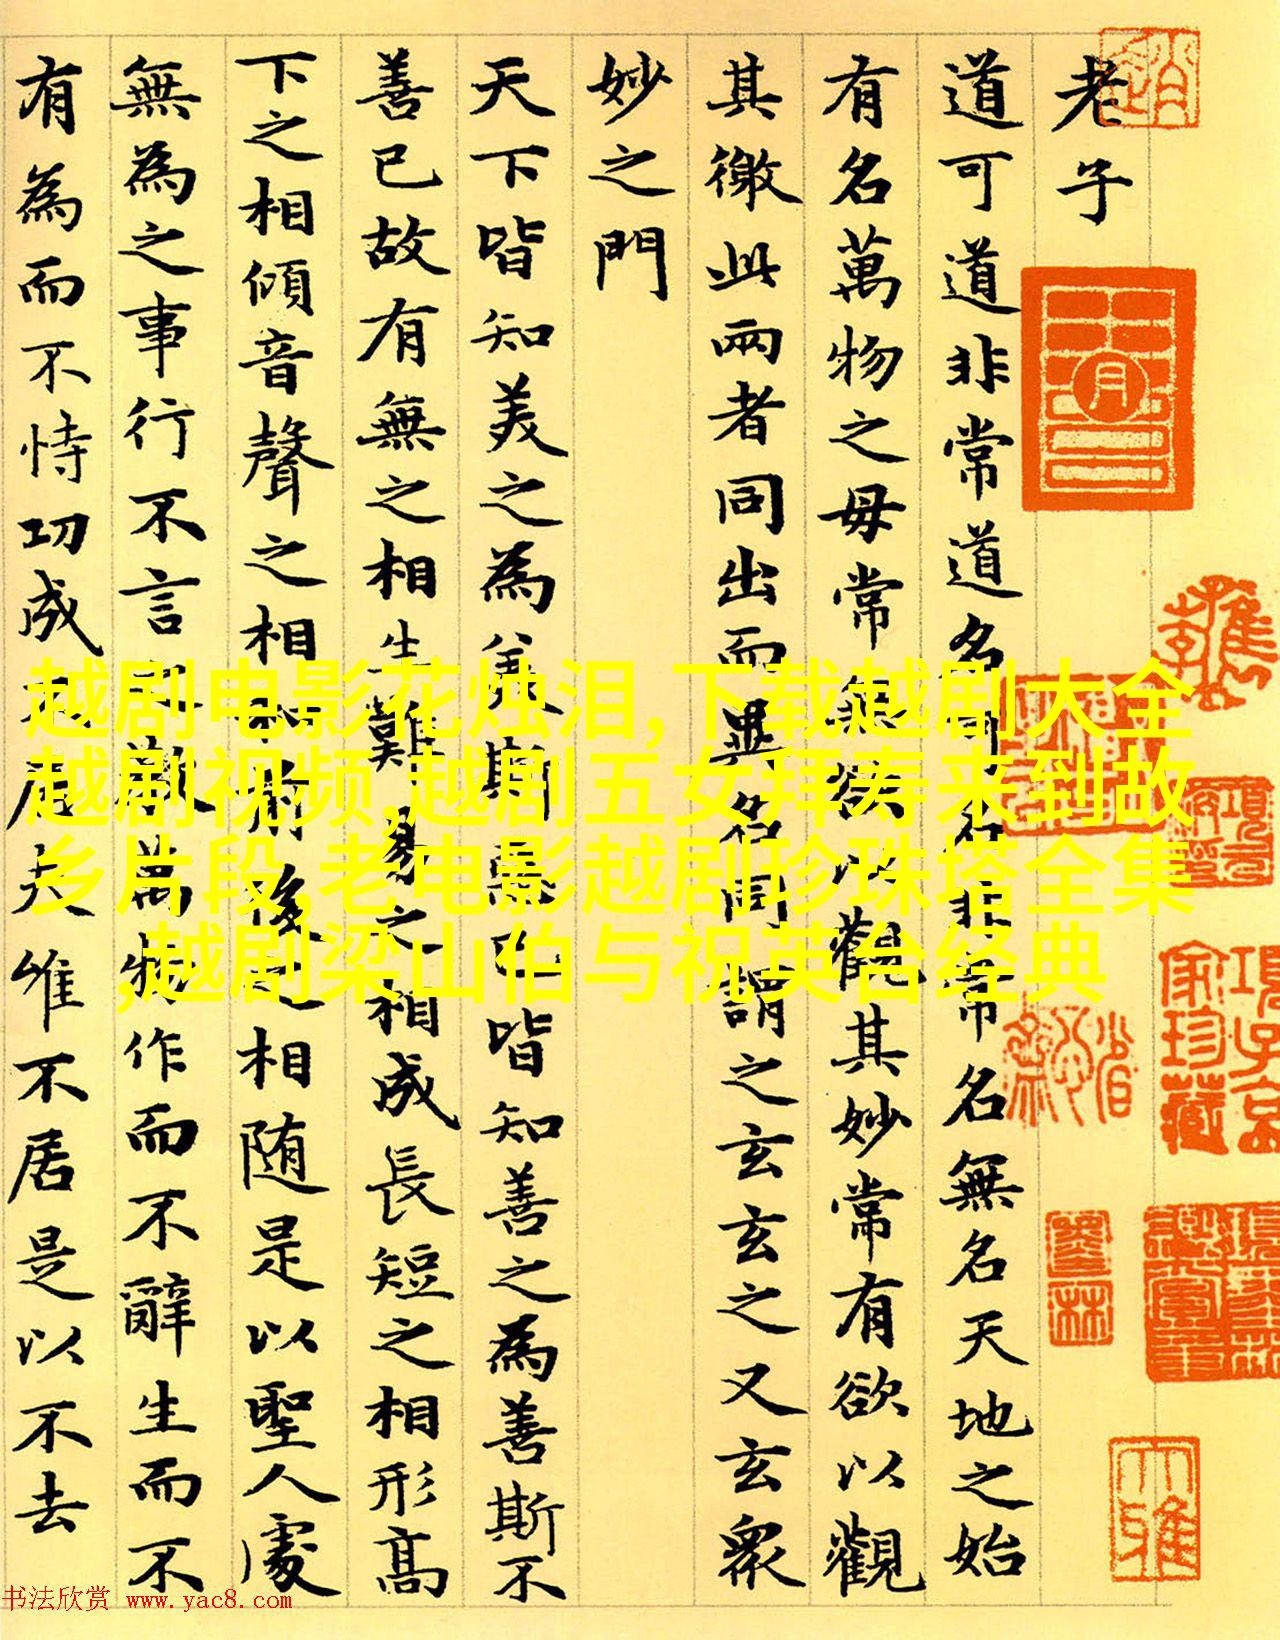 老子
道可道非常道名可名非常名無名天地之始
有名萬物之母常無欲以觀其妙常有欲以觀
其徼此兩者同出而異名同謂之玄玄之又玄衆
妙之門
天下皆知美之為美斯惡已皆知善之為善斯不
善已故有無之相生難易之相成長短之相形高
下之相傾音聲之相和前後之相随是以聖人處
無為之事行不言之教萬物作而不辭生而不
有為而不恃功成不居夫惟不居是以不去
越剧电影花烛泪,下载越剧大全
越剧视频,越剧五女拜寿来到故
乡片段,老电影越剧珍珠塔全集
,越剧梁山伯与祝英台经典
項子京
家珍藏
大雅
书法欣赏 www.yac8.com